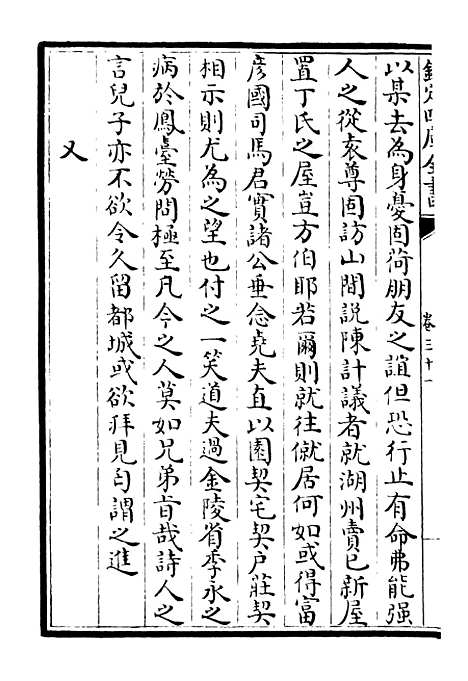 欽定四庫全書
卷三十一
以某去為身憂固荷朋友之誼但恐行止有命弗能强
人之從袁尊固訪山閒說陳計議者就湖州賣已新屋
置丁氏之屋豈方伯耶若爾則就往僦居何如或得富
彦國司馬君實諸公垂念堯夫直以園契宅契户莊契
相示則尤為之望也付之一笑道夫過金陵省季永之
病於鳳臺勞問極至凡今之人莫如兄弟旨哉詩人之
言兒子亦不欲令久留都城或欲拜見匄謂之進
又